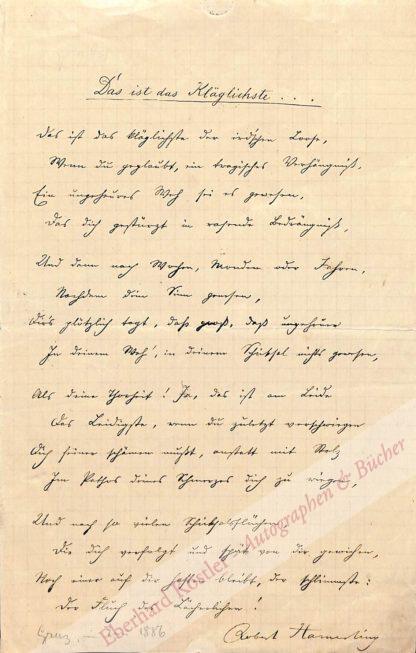 Das ist das Kläglichste . . .
Das ist das kläglichste der ird'schen Loose,
Wenn du geglaubt, ein tragisches Verhängniß,
Ein ungeheures Weh sei es gewesen,
Das dich gestürzt in rasende Bedrängniß,
Und dann nach Wochen, Monden oder Jahren,
Nachdem dein Sinn genesen,
Dir's plötzlich tagt, daß groß, daß ungeheuer
In deinem Weh', in deinem Schicksal nichts gewesen,
Als deine Thorheit! Ja, das ist am Leide
Das Leidigste, wenn du zuletzt verschwiegen
Dich seiner schämen mußt, anstatt mit Stolz
Im Pathos deines Schmerzes dich zu wiegen,
Und nach so vielen Schicksalsflüchen,
Die dich verfolgt und spät von dir gewichen,
Noch einer auf dir bleibt, der schlimmste:
Der Fluch des Lächerlichen!
Graz, 1886
Robert Hamerling
Eberhard Köstler Autographen & Bücher